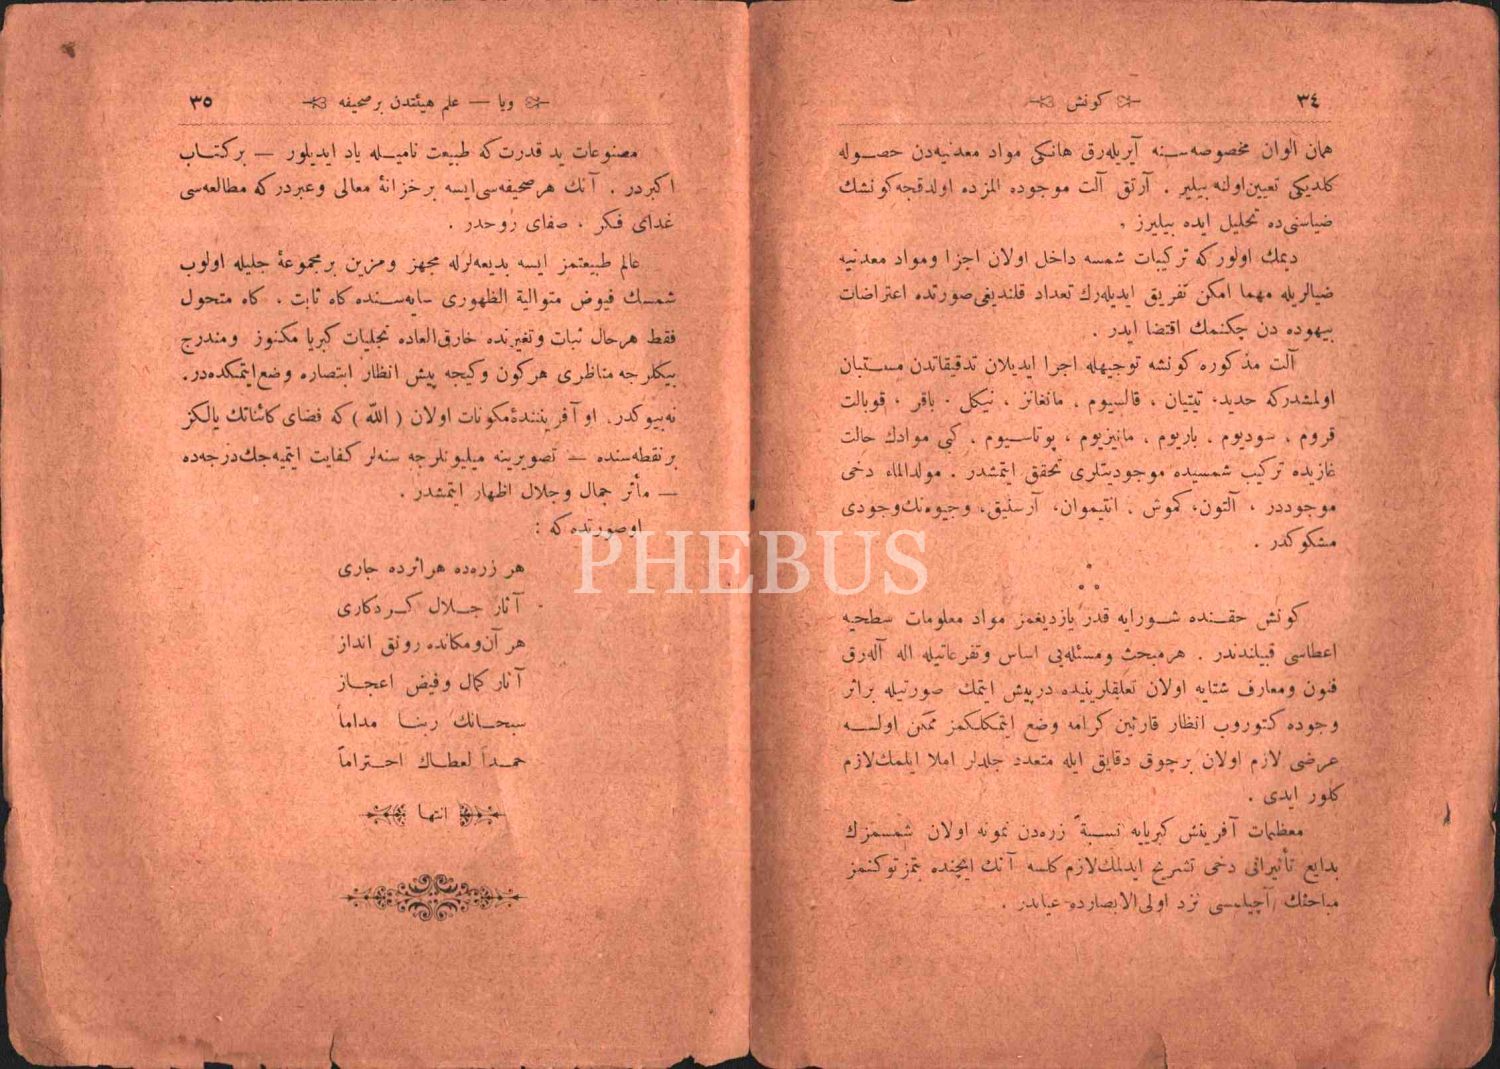 ٣٤
كونش
همان الوان مخصوصه‌سنه آیریله‌رق هانكی مواد معدنیه‌دن حصوله
كلدیكی تعیین‌اولنه بیلیر . آرتق آلت موجوده المزده اولدقجه‌كونشك
ضیاسنی‌ده تحلیل ایده بیلیرز .
دیمك اولوركه تركیبات شمسه داخل اولان اجزا ومواد معدنیه
ضیالریله مهما امكن تفریق ایدیله‌رك تعداد قلندیغی‌صورتده اعتراضات
بیهوده دن چكنمك اقتضا ایدر .
آلت مذكوره كونشه توجیهله اجرا ایدیلان تدقیقاتدن مستبان
اولمشدركه حدید، تیتیان ، قالسیوم . مانغانز . نیكل . باقر . قوبالت
قروم . سودیوم . باریوم . مانیزیوم ، پوتاسیوم . كبی موادك حالت
غازیده تركیب شمسیده موجودیتلری تحقق ایتمشدر . مولدالماء دخی
موجوددر ، آلتون، كموش . انتیموان، آرسنیق، وجیوه‌نك‌وجودی
مشكوكدر .
كونش حقنده شورایه قدر یازدیغمز مواد معلومات سطحیه
اعطاسی قبیلندندر . هرمبحث ومسئله‌یی اساس وتفرعاتیله اله آله‌رق
فنون ومعارف شتایه اولان تعلقلرینیده درپیش ایتمك صورتیله براثر
وجوده كتوروب انظار قارئین كرامه وضع ایتمكلكمز ممكن اولسه
عرضی لازم اولان برچوق دقایق ایله متعدد جلدلر املا ایلمك‌لازم
كلور ایدی .
معظمات آفرینش كبریایه نسبةً زره‌دن نمونه اولان شمسمزك
بدایع تأثیراتی دخی تشریح ایدلمك‌لازم كلسه آنك ایچنده بتمز توكنمز
مباحثك آچیلمسی نزد اولی‌الابصارده عیاندر .
ویا — علم هیئتدن برصحیفه
٣٥
مصنوعات ید قدرت كه طبیعت نامیله یاد ایدیلور — بركتاب
اكبردر . آنك هرصحیفه‌سی‌ایسه برخزانهٔ معالی وعبردركه مطالعه‌سی
غدای فكر ، صفای روحدر .
عالم طبیعتمز ایسه بدیعه‌لرله مجهز ومزین برمجموعهٔ جلیله اولوب
شمسك فیوض متوالیة الظهوری سایه‌سنده كاه ثابت ، كاه متحول
فقط هرحال ثبات وتغیرنده خارق‌العاده تجلیات كبریا مكنوز ومندرج
بیكلرجه مناظری هركون وكیجه پیش انظار ابتصاره وضع‌ایتمكده‌در.
نه‌بیوكدر. اوآفریننده‌ٔمكونات اولان ( الله ) كه فضای كائناتك یالكز
برنقطه‌سنده — تصویرینه میلیونلرجه سنه‌لر كفایت ایتمیه‌جك‌درجه‌ده
— مأثر جمال وجلال اظهار ایتمشدر .
اوصورتده كه :
هر زره‌ده هراثرده جاری
آثار جلال كردكاری
هر آن‌ومكانده رونق انداز
آثار كمال وفیض اعجاز
سبحانك ربنا مداما
حمداً لعطاك احتراماً
انتها
PHEBUS